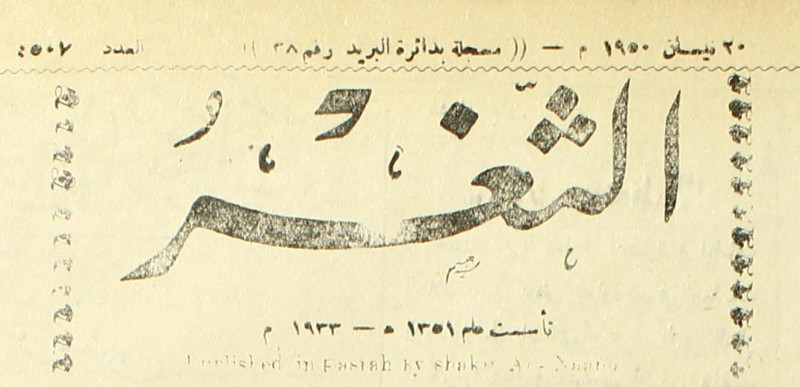 ٢٠ نيسان ١٩٥٠ م — (( مسجلة بدائرة البريد رقم ٣٨ )) العدد ٤٥٠٧
الثَّغْرُ
تأسست عام ١٣٥١ ه — ١٩٣٣ م
Published in Basrah By Shakir